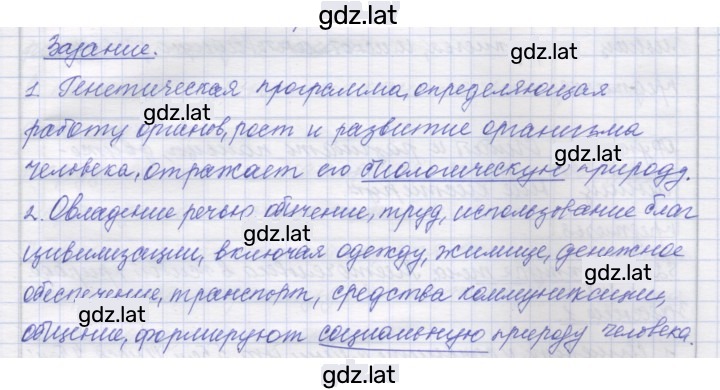 gdz.lat
Задание.
gdz.lat
1. Генетическая программа, определяющая
gdz.lat
работу органов, рост и развитие организма
gdz.lat
человека, отражает его биологическую природу.
2. Овладение речью обучение, труд, использование благ
gdz.lat
цивилизации, включая одежду, жилище, денежное
gdz.lat
обеспечение, транспорт, средства коммуникации,
gdz.lat
общение, формируют социальную природу человека.
gdz.lat